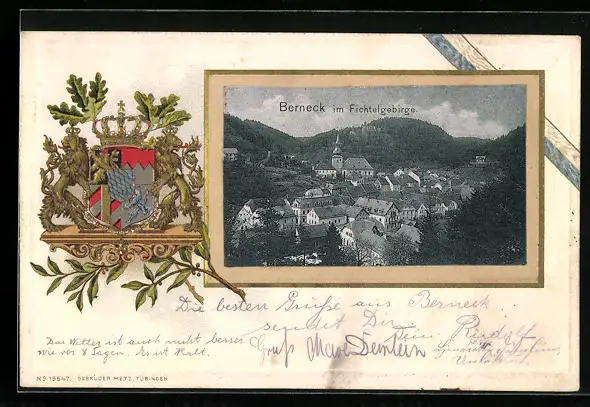 Berneck im Fichtelgebirge.
Die besten Grüße aus Berneck
sendet Dir Dein Rudolf
Das Wetter ist auch nicht besser
wie vor 8 Tagen. Es ist kalt.
Gruß
No 19547. GEBRÜDER METZ, TÜBINGEN